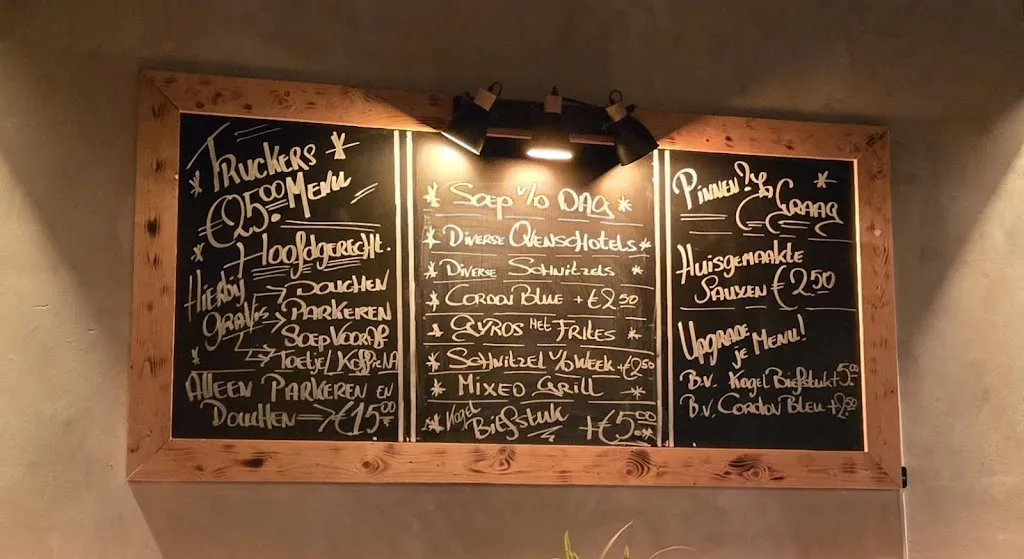 Truckers
€25.00 Menu
Hoofdgerecht.
Hierbij gratis → Douchen
→ Parkeren
→ Soep Vooraf
→ Toetje/Koffie NA
Alleen Parkeren en
Douchen → €15.00
Soep v/d DAG
Diverse Ovenschotels
Diverse Schnitzels
Cordon Blue + €2.50
Gyros Met Frites
Schnitzel v/d Week + €2.50
Mixed Grill
Kogel Biefstuk + €5.00
Pinnen?
Graag
Huisgemaakte
Sauzen €2.50
Upgrade
je Menu!
B.v. Kogel Biefstuk +5.-
B.v. Cordon Bleu +2.50